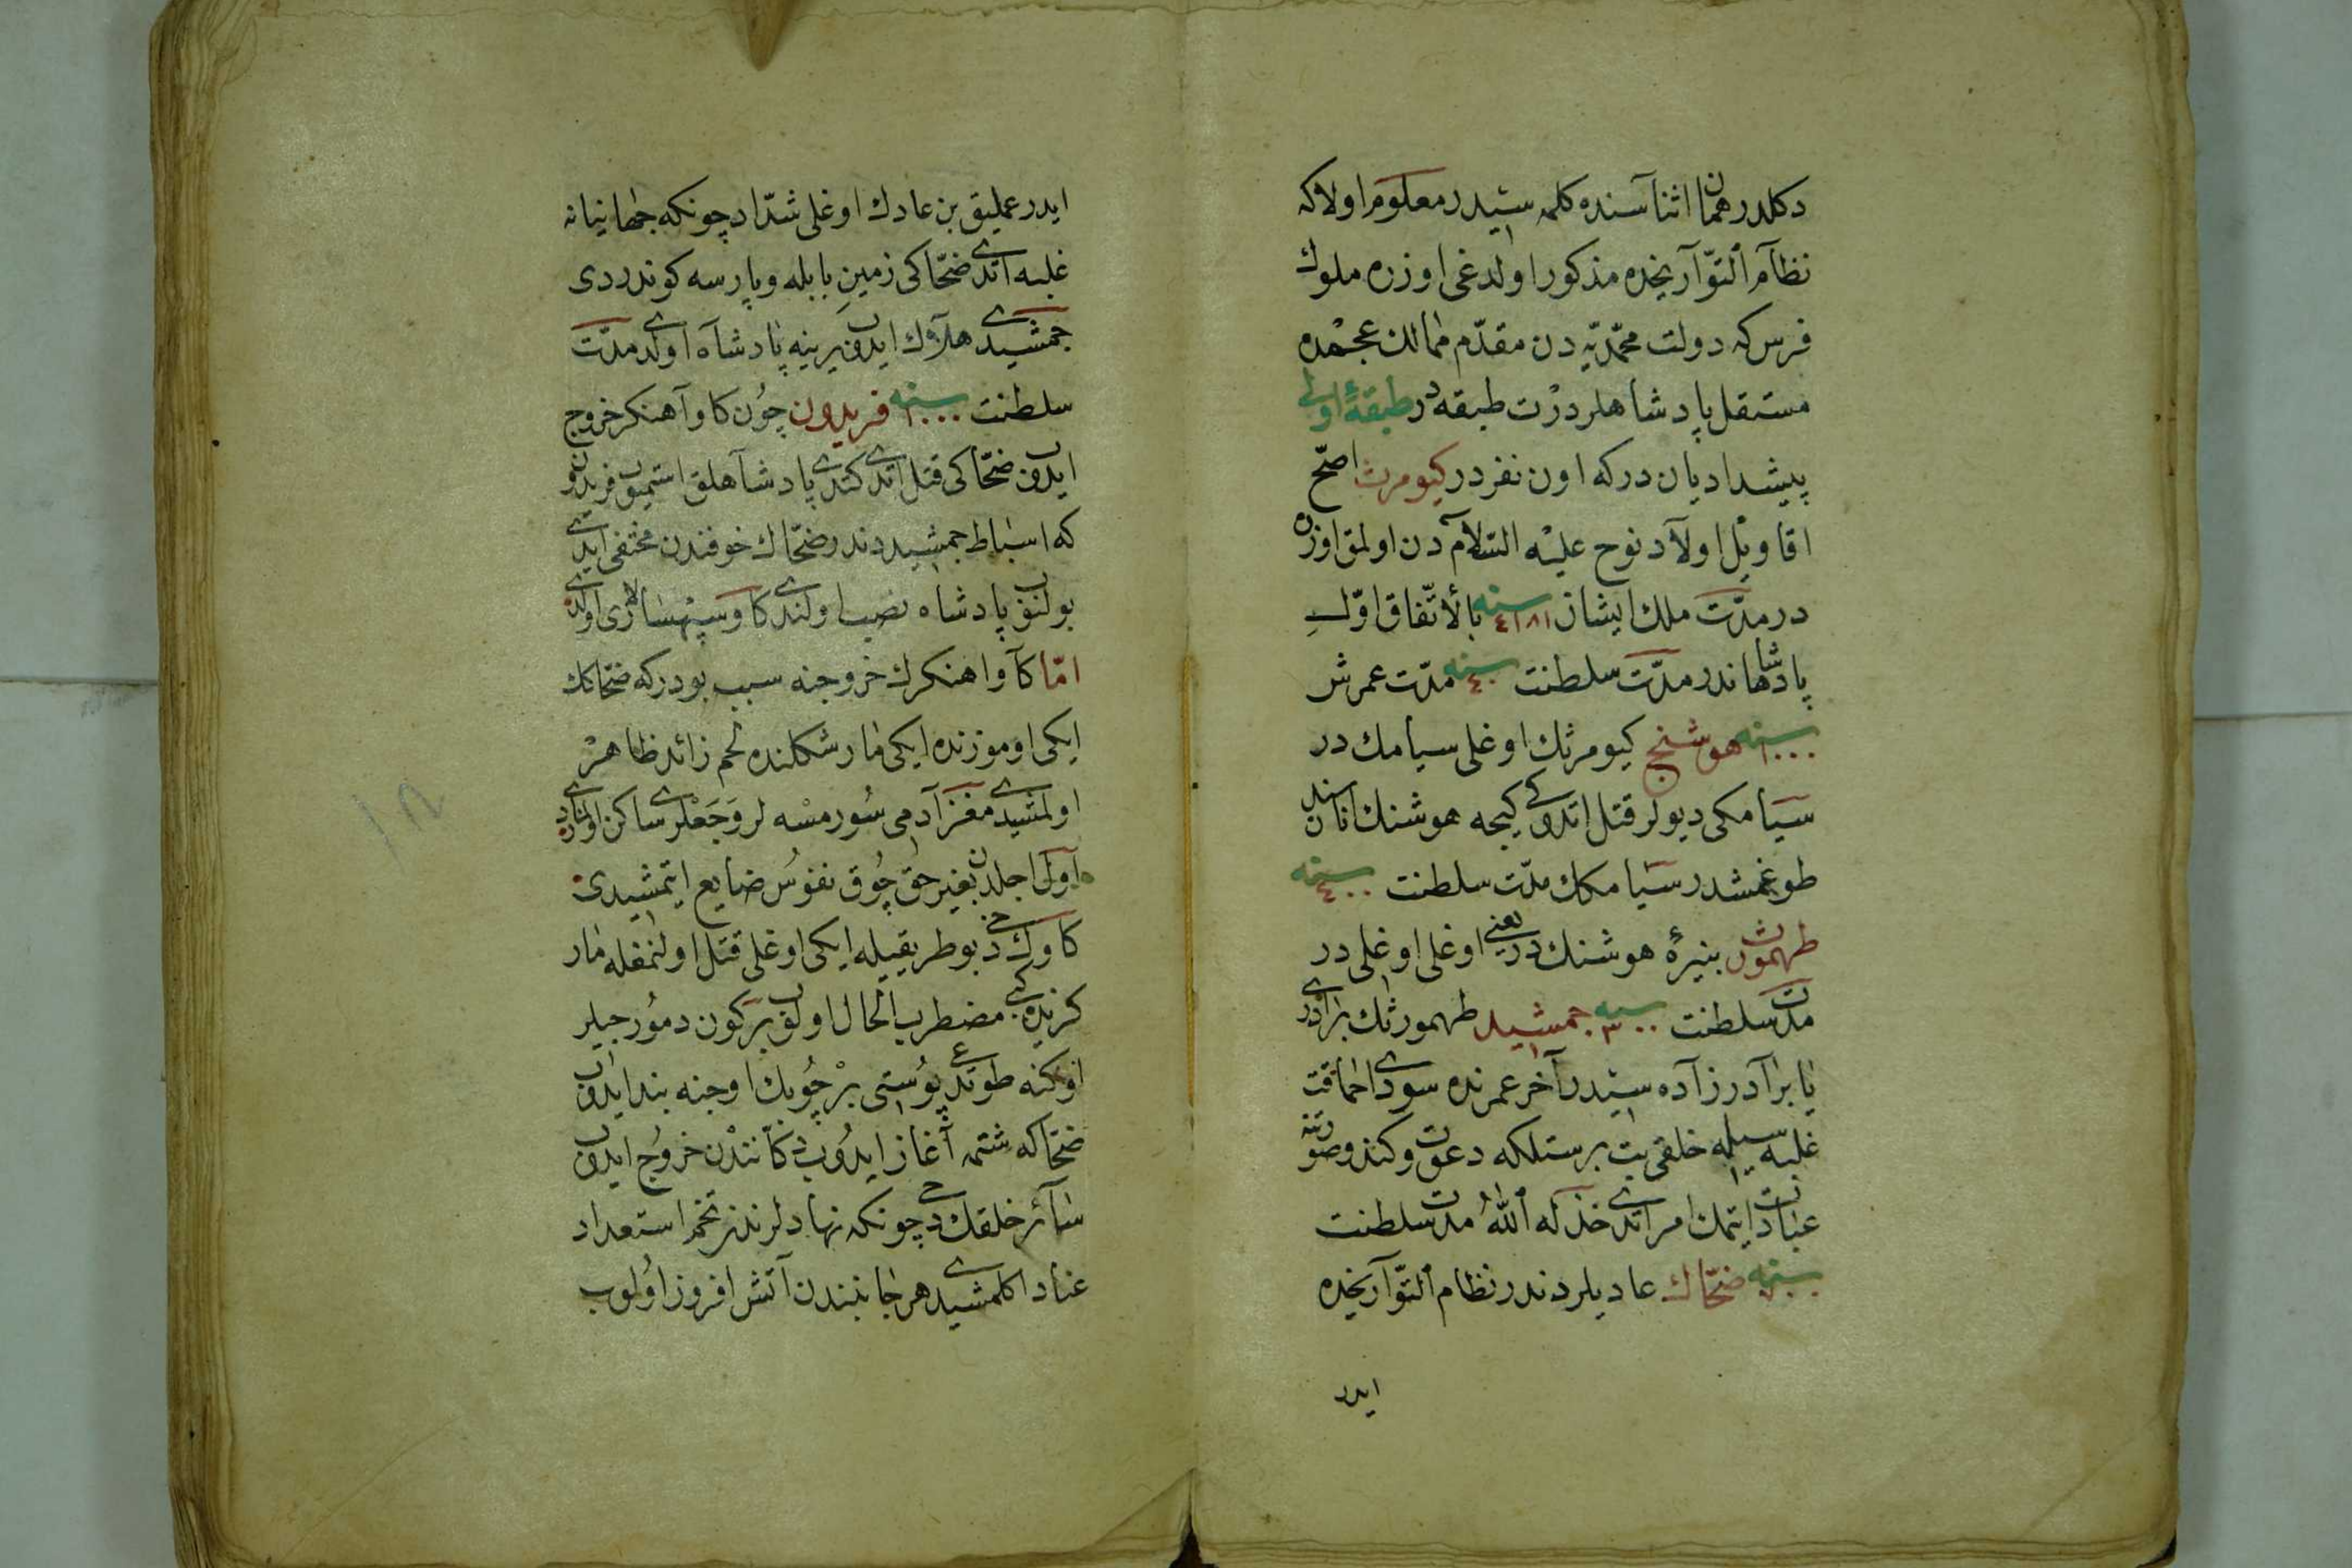 دكلدر همان اثناسنده كلمه سیدر معلوم اولاكه
نظام التّوآریخده مذكور اولدغی اوزره ملوك
فرس كه دولت محمّدیّه دن مقدّم ممالك عجمده
مستقل پادشاهلردر درت طبقه در طبقهٔ اولی
پیشدادیان دركه اون نفردر كیومرث اصحّ
اقاویل اولاد نوح علیْه السّلام دن اولمق اوزره
در مدّت ملك ایشان ٤١٨١ سنه بالاتّفاق اوّلِ
پادشاهاندر مدّت سلطنت ٤٠ سنه مدّت عمرش
١٠٠٠ سنه هوشنج كیومرثك اوغلی سیامك در
سیامكی دیولر قتل اتدوكی كیجه هوشنك اناسندن
طوغمشدر سیامكك مدّت سلطنت ٤٠٠ سنه
طهمورث بنیرهٔ هوشنك در یعنی اوغلی اوغلی در
مدت سلطنت ٣٠٠ سنه جمشید طهمورثك برادری در
یا برادرزاده سیدر آخر عمرنده سودا حماقت
غلبه سیله خلقی بت پرستلكه دعوت وكندو صورتنه
عبادت ایتمك امر اتدی خذله اللّٰهُ مدت سلطنت
سنه ضحّاك عادیلر دندر نظام التّوآریخده
ایدر
ایدر عملیق بن عادك اوغلی شدّاد چونكه جهانیانه
غلبه اتدی ضحّاكی زمینِ بابله وپارسه كوندردی
جمشیدی هلاك ایدوب یرینه پادشاه اولدی مدّت
سلطنت ١٠٠٠ سنه فریدون چوُن كاوآهنكر خروج
ایدوب ضحّاكی قتل اتدی كندی پادشاهلق استمیوب فریدون
كه اسباط جمشید دندر ضحّاك خوفندن مختفی ایدی
بولنوب پادشاه نصب اولندی كاو سپهسالاری اولدی
امّا كاوا هنكرك خروجنه سبب بودركه ضحّاكك
ایكی اوموزنده ایكی مار شكلنده لحم زائد ظاهرْ
اولمشیدی مغز آدمی سُورمسْه لر وجعلری ساكن اولمازدی
اول اجلدن بغیر حق چُوق نفوُس ضایع ایتمشیدی
كاوك دخی بو طریقیله ایكی اوغلی قتل اولنمغله مار
كزیده كبی مضطرب الحال اولوب بر كون دموُرجیلر
اوكنه طوتدغی پوُستی برْ چُوبك اوجنه بند ایدوب
ضحّاكه شتمه آغاز ایدوُب دكاننْدن خروُج ایدوب
سائر خلقك دخی چونكه نهادلرندز تخم استعداد
عناد اكلمشیدی هر جانبندن آتش افروز اوُلوب